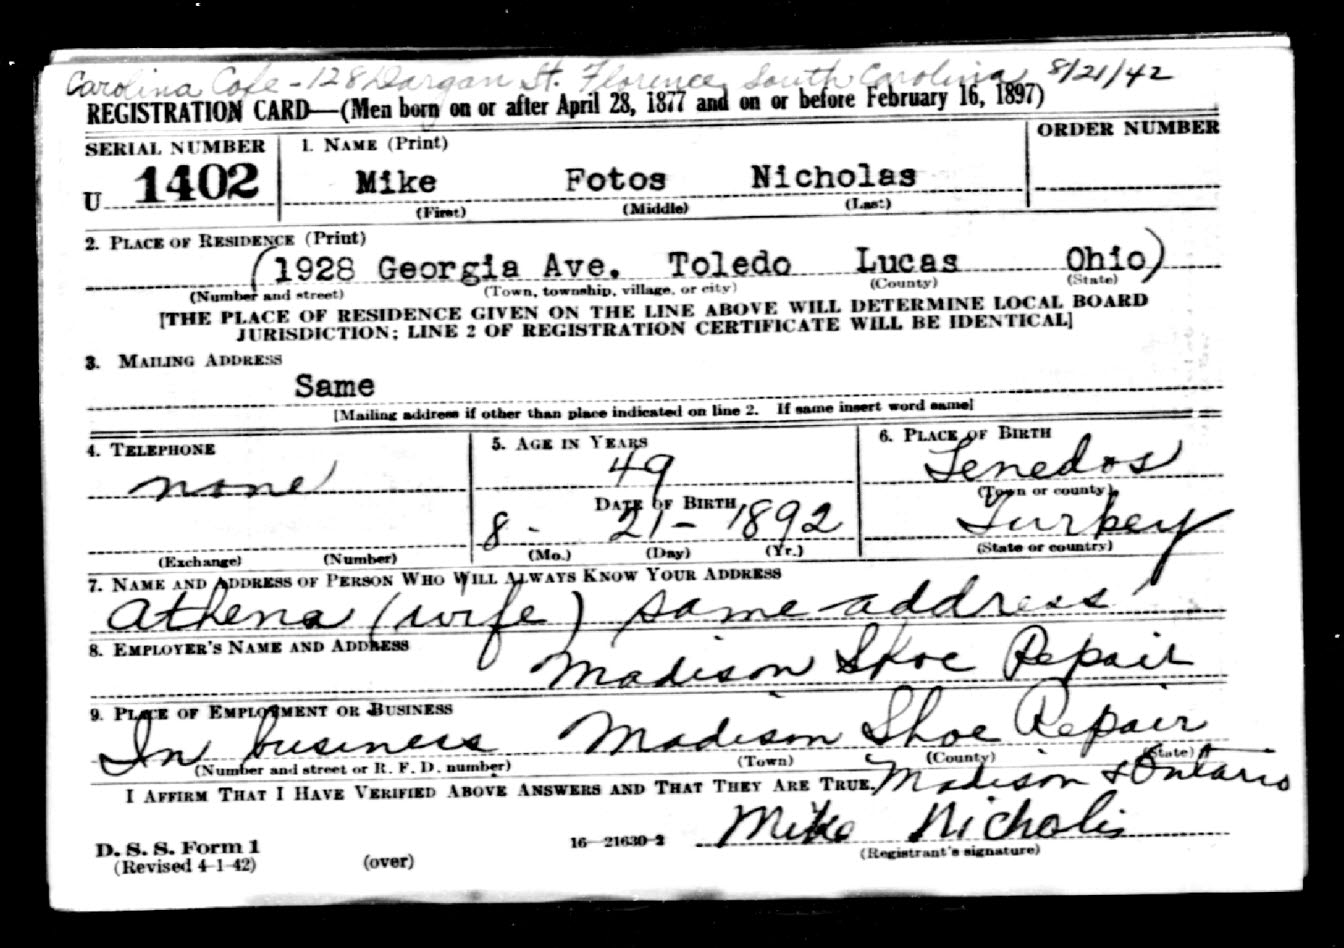 Carolina Cafe - 128 Dargan St. Florence, South Carolina, 8/21/42
REGISTRATION CARD—(Men born on or after April 28, 1877 and on or before February 16, 1897)
SERIAL NUMBER
1. NAME (Print)
ORDER NUMBER
U 1402
Mike Fotos Nicholas
(First) (Middle) (Last)
2. PLACE OF RESIDENCE (Print)
(1928 Georgia Ave. Toledo Lucas Ohio)
(Number and street) (Town, township, village, or city) (County) (State)
[THE PLACE OF RESIDENCE GIVEN ON THE LINE ABOVE WILL DETERMINE LOCAL BOARD
JURISDICTION; LINE 2 OF REGISTRATION CERTIFICATE WILL BE IDENTICAL]
3. MAILING ADDRESS
Same
[Mailing address if other than place indicated on line 2. If same insert word same]
4. TELEPHONE
none
(Exchange) (Number)
5. AGE IN YEARS
49
DATE OF BIRTH
8 - 21 - 1892
(Mo.) (Day) (Yr.)
6. PLACE OF BIRTH
Tenedos
(Town or county)
Turkey
(State or country)
7. NAME AND ADDRESS OF PERSON WHO WILL ALWAYS KNOW YOUR ADDRESS
Athena (wife) same address
8. EMPLOYER'S NAME AND ADDRESS
Madison Shoe Repair
9. PLACE OF EMPLOYMENT OR BUSINESS
In business Madison Shoe Repair
(Number and street or R. F. D. number) (Town) (County) (State)
I AFFIRM THAT I HAVE VERIFIED ABOVE ANSWERS AND THAT THEY ARE TRUE. Madison & Ontario
Mike Nicholis
D. S. S. Form 1
(Revised 4-1-42) (over) 16—21630-2 (Registrant's signature)